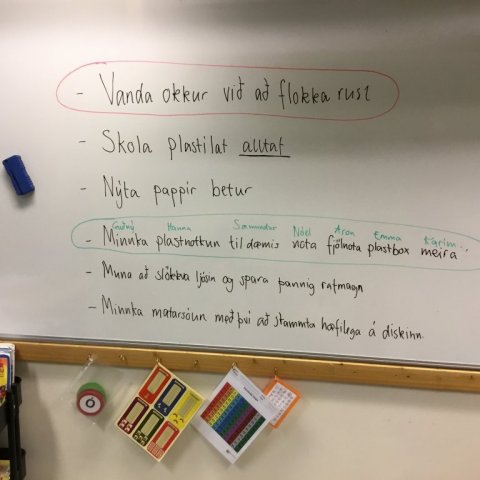 - Vanda okkur við að flokka rusl
- Skola plastílát alltaf
- Nýta pappír betur
Guðný Hanna Sæmundur Nóel Aron Emma Karim
- Minnka plastnotkun til dæmis nota fjölnota plastbox meira
- Muna að slökkva ljósin og spara þannig rafmagn
- Minnka matarsóun með því að skammta hæfilega á diskinn.